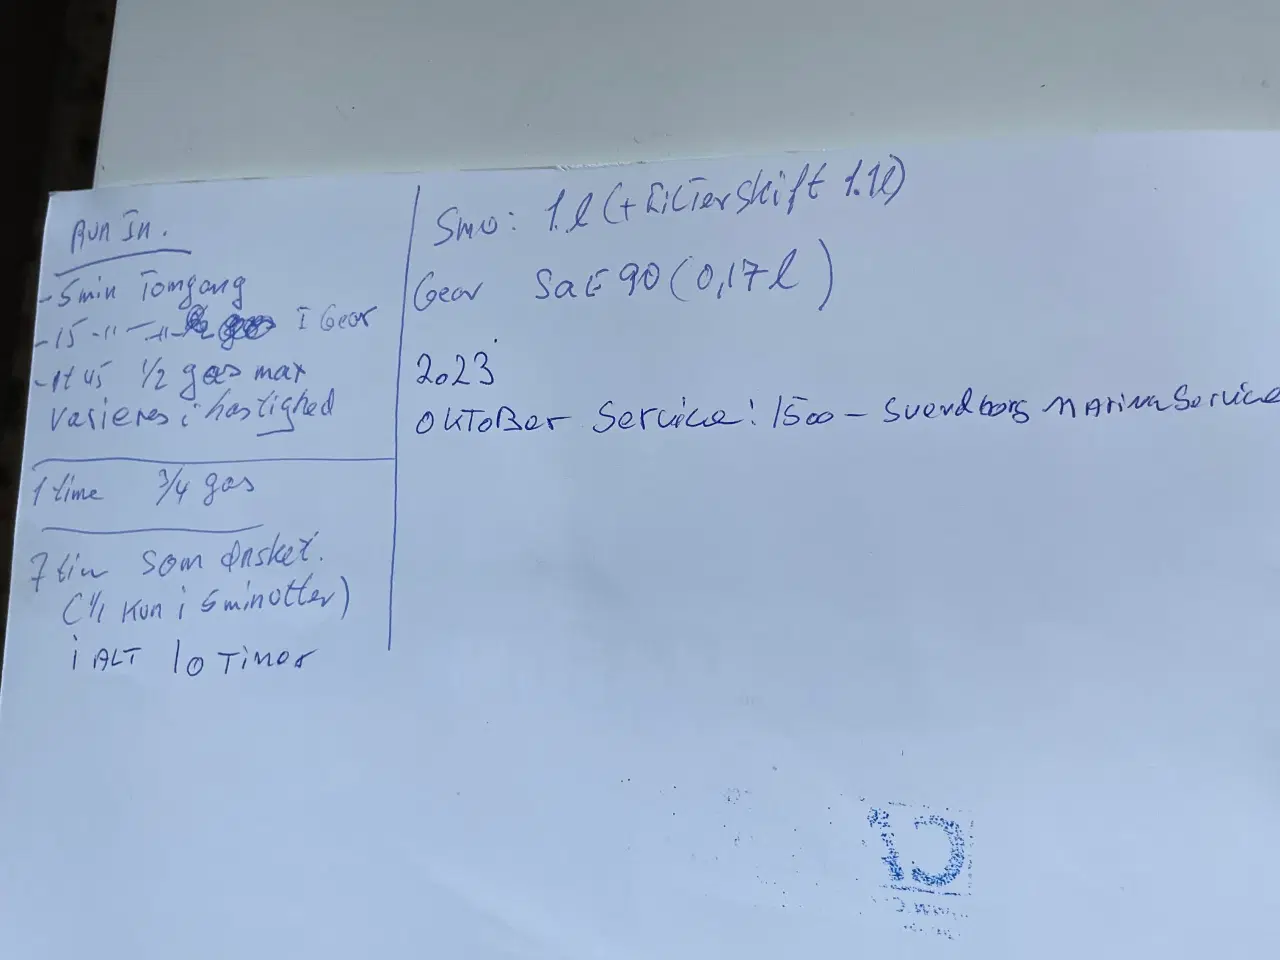 Run In.
- 5 min Tomgang
- 15 -"- -"- I Gear
- 1t 45 1/2 gas max
Varieres i hastighed
1 time 3/4 gas
7 tim som ønsket.
(1/1 kun i 5 minutter)
i ALT 10 Timer
Smo: 1.l (+ Filterskift 1.1l)
Gear SAE 90 (0,17 l)
2023
OKTOBER Service: 1500 - Svendborg Marine Service